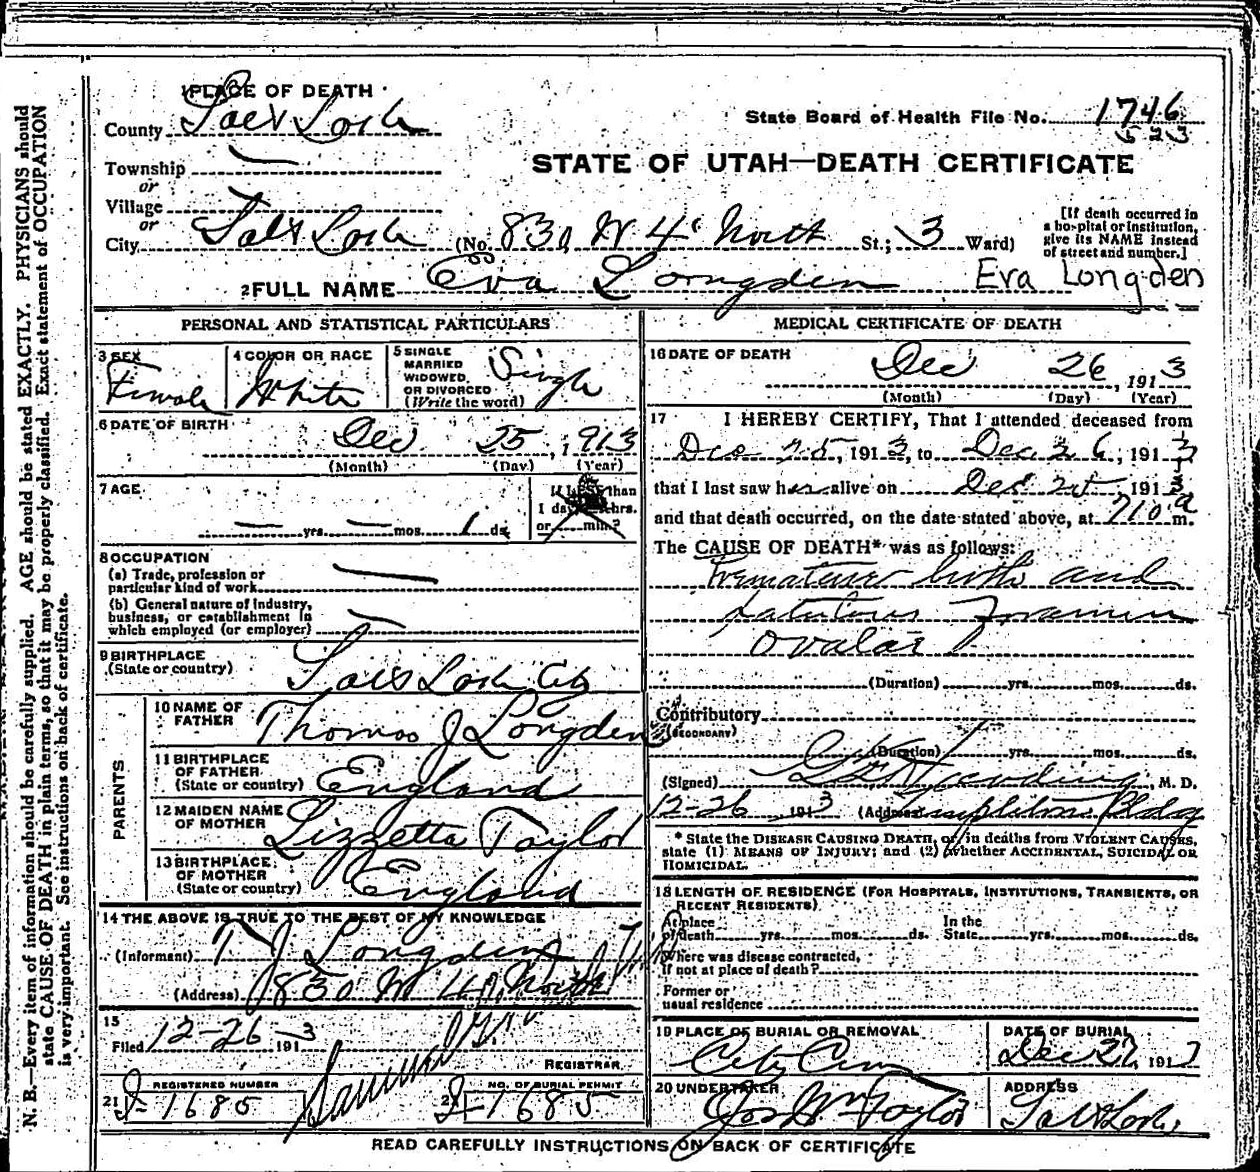 1 PLACE OF DEATH
County Salt Lake
State Board of Health File No. 1746
523
STATE OF UTAH—DEATH CERTIFICATE
Township —
or
Village
or
City Salt Lake (No. 830 W 4' North St.; 3 Ward)
[If death occurred in
a hospital or institution,
give its NAME instead
of street and number.]
2 FULL NAME Eva Longden Eva Longden
PERSONAL AND STATISTICAL PARTICULARS
3 SEX
Female
4 COLOR OR RACE
White
5 SINGLE
MARRIED
WIDOWED
OR DIVORCED
(Write the word)
Single
6 DATE OF BIRTH
Dec 25, 1913
(Month) (Day) (Year)
7 AGE
— yrs. — mos. 1 ds.
If LESS than
1 day hrs.
or min.?
8 OCCUPATION
(a) Trade, profession or
particular kind of work —
(b) General nature of industry,
business, or establishment in
which employed (or employer) —
9 BIRTHPLACE
(State or country) Salt Lake City
PARENTS
10 NAME OF
FATHER Thomas J Longden
11 BIRTHPLACE
OF FATHER
(State or country) England
12 MAIDEN NAME
OF MOTHER Lizzetta Taylor
13 BIRTHPLACE
OF MOTHER
(State or country) England
14 THE ABOVE IS TRUE TO THE BEST OF MY KNOWLEDGE
(Informant) T J Longden
(Address) 830 W 4th North
15
Filed 12-26-, 1913
REGISTRAR
21 REGISTERED NUMBER
I-1685
NO. OF BURIAL PERMIT
I-1685
MEDICAL CERTIFICATE OF DEATH
16 DATE OF DEATH
Dec 26, 1913
(Month) (Day) (Year)
17 I HEREBY CERTIFY, That I attended deceased from
Dec 25, 1913, to Dec 26, 1913
that I last saw her alive on Dec 25 1913
and that death occurred, on the date stated above, at 710 a m.
The CAUSE OF DEATH* was as follows:
Premature birth and
patulous Foramen
ovalae
(Duration) yrs. mos. ds.
Contributory
(SECONDARY)
(Duration) yrs. mos. ds.
(Signed) M. D.
12-26 1913 (Address) Templeton Bldg
* State the DISEASE CAUSING DEATH, or, in deaths from VIOLENT CAUSES,
state (1) MEANS OF INJURY; and (2) whether ACCIDENTAL, SUICIDAL OR
HOMICIDAL.
18 LENGTH OF RESIDENCE (FOR HOSPITALS, INSTITUTIONS, TRANSIENTS, OR
RECENT RESIDENTS)
At place
of death yrs. mos. ds. In the
State yrs. mos. ds.
Where was disease contracted,
if not at place of death?
Former or
usual residence
19 PLACE OF BURIAL OR REMOVAL
City Cem
DATE OF BURIAL
Dec 27, 191
20 UNDERTAKER
Jos Wm Taylor
ADDRESS
Salt Lake
READ CAREFULLY INSTRUCTIONS ON BACK OF CERTIFICATE
N. B.—Every item of information should be carefully supplied. AGE should be stated EXACTLY. PHYSICIANS should
state CAUSE OF DEATH in plain terms, so that it may be properly classified. Exact statement of OCCUPATION
is very important. See instructions on back of certificate.